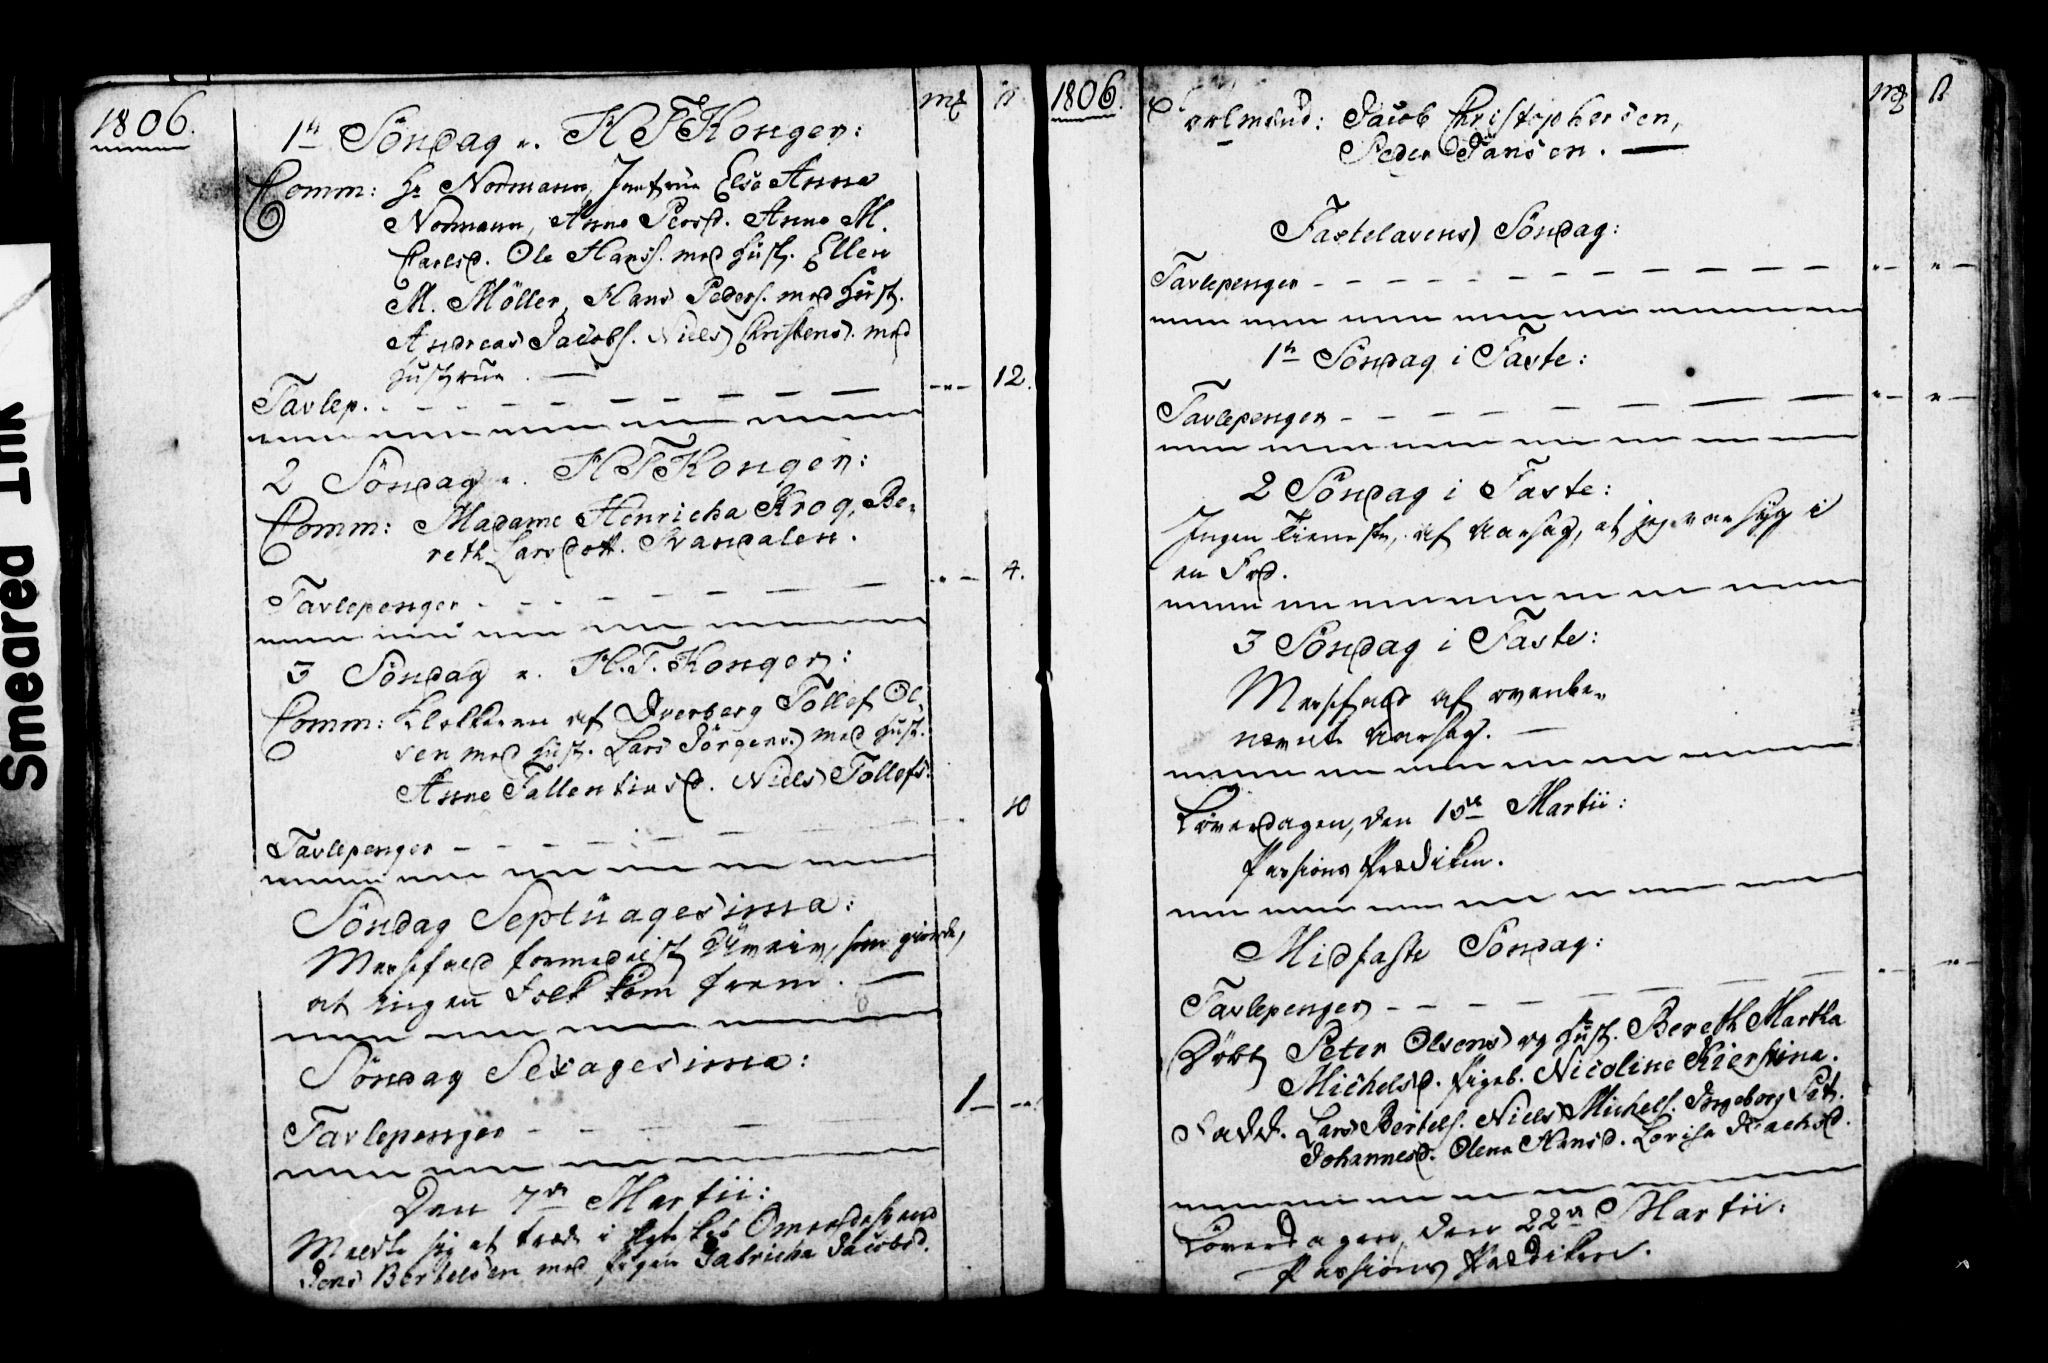 Smeared Ink
1806.
mk ß
1te Söndag e. H T Konger:
Comm: Hr Normann, Jomfrue Else Anna
Normann, Anne Persd. Anne M.
Carlsd. Ole Hanss. med Hust. Ellen
M. Möller, Hans Peders. med Hust.
Andreas Jacobs. Niels Christens. med
Hustrue. —
Tavlep. - - - - - - - - „ 12.
2 Söndag e. H T Konger:
Comm: Madame Henricha Krog, Be-
reth Larsdott. Svandalen.
Tavlepenger - - - - - - „ 4.
3 Söndag e. H. T. Konger:
Comm: Klokkeren af Dverberg Tollef Ol-
sen med Hust. Lars Jörgens. med Hust.
Anne Fallentinsd. Niels Tollefs.
Tavlepenger - - - - - - 10
Söndag Septuagesima:
Messefald formedelst Uveir, som giorde,
at ingen Folk kom frem. —
Söndag Sexagesima:
Tavlepenger - - - - - 1 - „
Den 7de Martii:
Meldte sig at træde i Egteskab
Jens Bertelsen med Pigen Jabricha Jacobsd.
1806.
mk ß
Forlovnd: Jacob Christophersen,
Peder Jansen. —
Fastelavens Söndag:
Tavlepenger - - - - - - - - - „ „
1te Söndag i Faste:
Tavlepenger - - - - - - - „ „
2 Söndag i Faste:
Ingen Tieneste, af Aarsag, at jeg var syg i
en Fod.
3 Söndag i Faste:
Messefald af ovenbe-
nævnte Aarsag. —
Löverdagen, den 15de Martii:
Passions Prædiken.
Midfaste Söndag:
Tavlepenger - - - - - - - „ „
Döbt Peter Olsens og Hust. Bereth Martha
Michelsd. Pigeb. Nicoline Kierstina.
Fadd. Lars Bertels. Niels Michels. Ingeborg Pet.
Johannesd. Olena Hansd. Lovisa
Löverdagen, den 22de Martii:
Passions Prædiken.